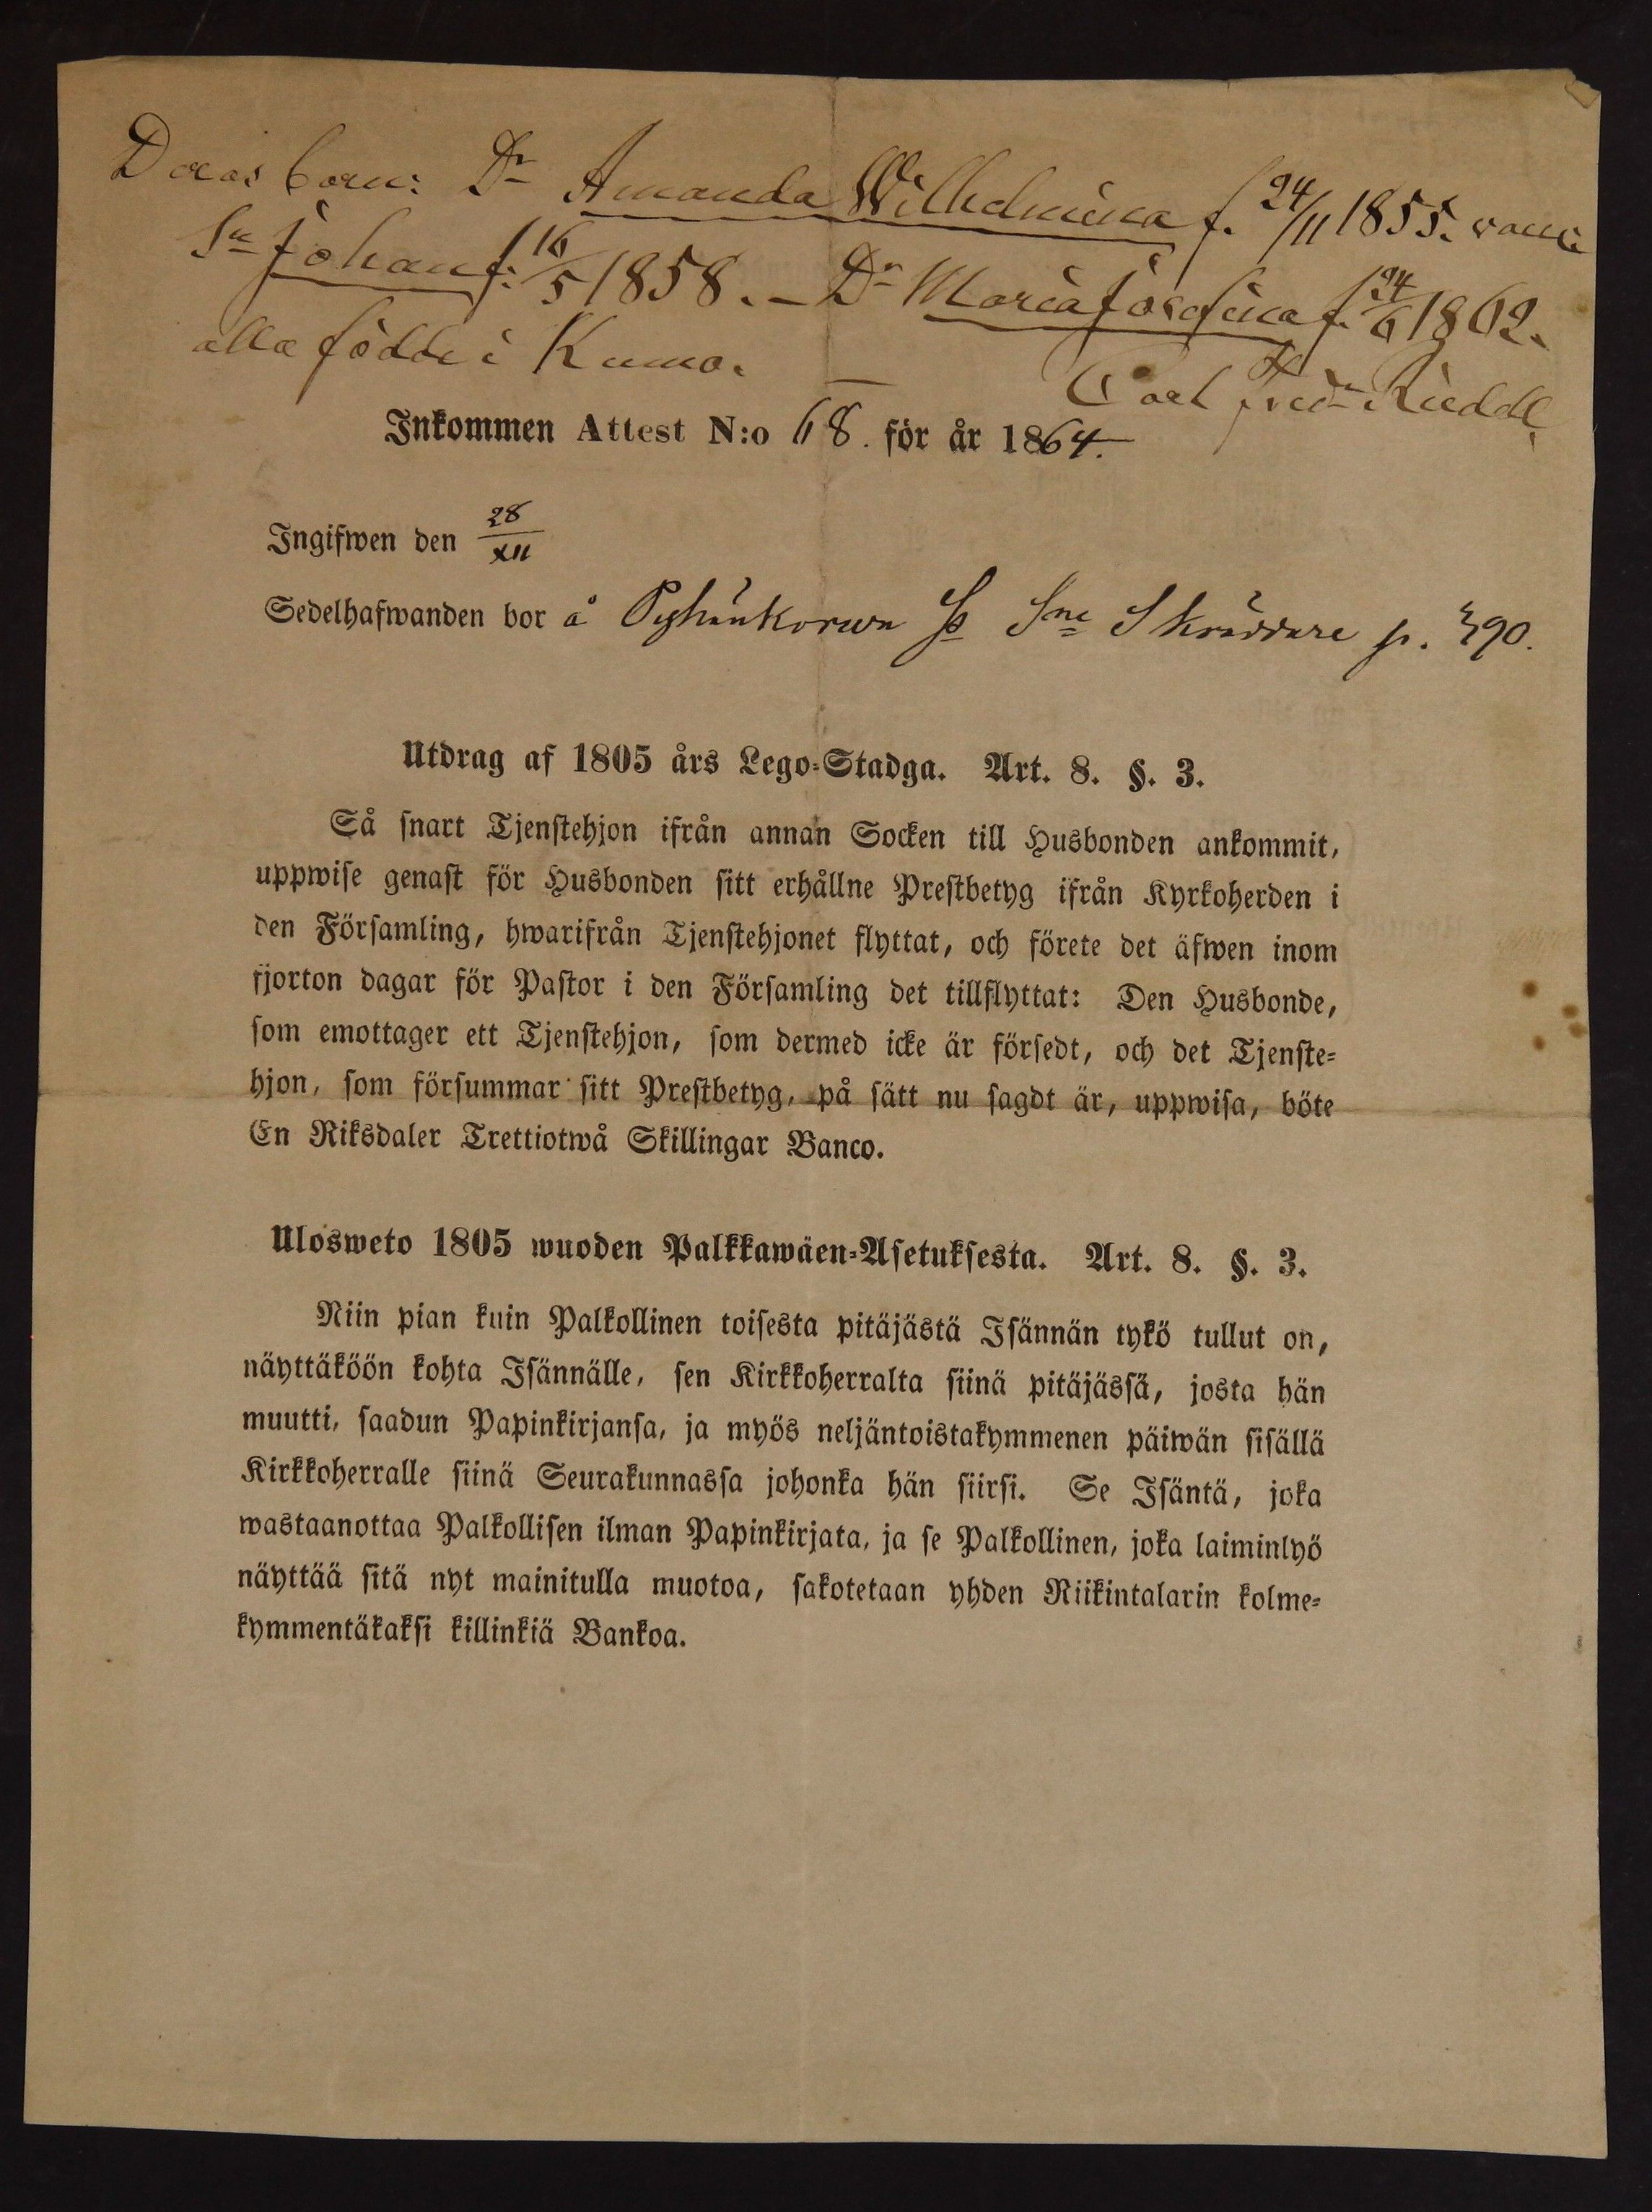 Deras barn: Dr Amanda Wilhelmina f. 24/11 1855. vacc.
Sn Johan f. 16/5 1858. – Dr Maria Josefina f. 24/6 1862.
alla födde i Kumo. —
Carl Fredr
Inkommen Attest N:o 68. för år 1864.
Ingifwen den 28/XII
Sedelhafwanden bor å Skräddare p. 390.
Utdrag af 1805 års Lego-Stadga. Art. 8. §. 3.
Så snart Tjenstehjon ifrån annan Socken till Husbonden ankommit,
uppwise genast för Husbonden sitt erhållne Prestbetyg ifrån Kyrkoherden i
den Församling, hwarifrån Tjenstehjonet flyttat, och förete det äfwen inom
fjorton dagar för Pastor i den Församling det tillflyttat: Den Husbonde,
som emottager ett Tjenstehjon, som dermed icke är försedt, och det Tjenste-
hjon, som försummar sitt Prestbetyg, på sätt nu sagdt är, uppwisa, böte
En Riksdaler Trettiotwå Skillingar Banco.
Ulosweto 1805 wuoden Palkkawäen-Asetuksesta. Art. 8. §. 3.
Niin pian kuin Palkollinen toisesta pitäjästä Isännän tykö tullut on,
näyttäköön kohta Isännälle, sen Kirkkoherralta siinä pitäjässä, josta hän
muutti, saadun Papinkirjansa, ja myös neljäntoistakymmenen päiwän sisällä
Kirkkoherralle siinä Seurakunnassa johonka hän siirsi. Se Isäntä, joka
wastaanottaa Palkollisen ilman Papinkirjata, ja se Palkollinen, joka laiminlyö
näyttää sitä nyt mainitulla muotoa, sakotetaan yhden Riikintalarin kolme-
kymmentäkaksi killinkiä Bankoa.